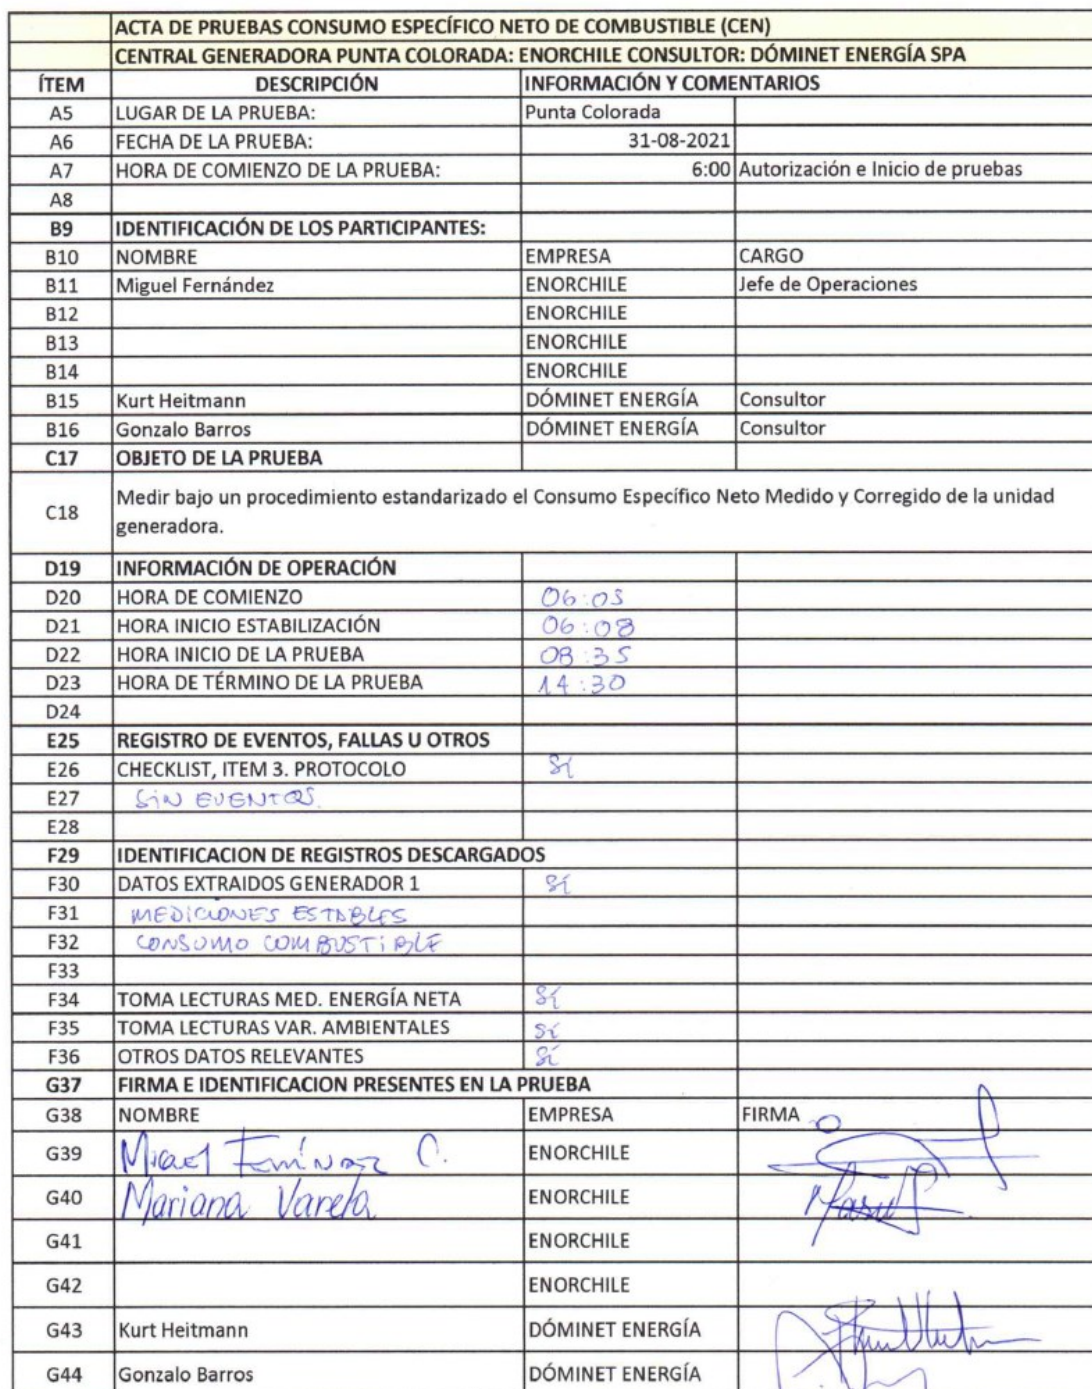 ACTA DE PRUEBAS CONSUMO ESPECÍFICO NETO DE COMBUSTIBLE (CEN)
CENTRAL GENERADORA PUNTA COLORADA: ENORCHILE CONSULTOR: DÓMINET ENERGÍA SPA
ÍTEM DESCRIPCIÓN INFORMACIÓN Y COMENTARIOS
A5 LUGAR DE LA PRUEBA: Punta Colorada
A6 FECHA DE LA PRUEBA: 31-08-2021
A7 HORA DE COMIENZO DE LA PRUEBA: 6:00 Autorización e Inicio de pruebas
A8
B9 IDENTIFICACIÓN DE LOS PARTICIPANTES:
B10 NOMBRE EMPRESA CARGO
B11 Miguel Fernández ENORCHILE Jefe de Operaciones
B12 ENORCHILE
B13 ENORCHILE
B14 ENORCHILE
B15 Kurt Heitmann DÓMINET ENERGÍA Consultor
B16 Gonzalo Barros DÓMINET ENERGÍA Consultor
C17 OBJETO DE LA PRUEBA
C18 Medir bajo un procedimiento estandarizado el Consumo Específico Neto Medido y Corregido de la unidad
generadora.
D19 INFORMACIÓN DE OPERACIÓN
D20 HORA DE COMIENZO 06:05
D21 HORA INICIO ESTABILIZACIÓN 06:08
D22 HORA INICIO DE LA PRUEBA 08:35
D23 HORA DE TÉRMINO DE LA PRUEBA 14:30
D24
E25 REGISTRO DE EVENTOS, FALLAS U OTROS
E26 CHECKLIST, ITEM 3. PROTOCOLO Sí
E27 SIN EVENTOS.
E28
F29 IDENTIFICACION DE REGISTROS DESCARGADOS
F30 DATOS EXTRAIDOS GENERADOR 1 Sí
F31 MEDICIONES ESTABLES
F32 CONSUMO COMBUSTIBLE
F33
F34 TOMA LECTURAS MED. ENERGÍA NETA Sí
F35 TOMA LECTURAS VAR. AMBIENTALES Sí
F36 OTROS DATOS RELEVANTES Sí
G37 FIRMA E IDENTIFICACION PRESENTES EN LA PRUEBA
G38 NOMBRE EMPRESA FIRMA
G39 C. ENORCHILE
G40 Mariana Varela ENORCHILE
G41 ENORCHILE
G42 ENORCHILE
G43 Kurt Heitmann DÓMINET ENERGÍA
G44 Gonzalo Barros DÓMINET ENERGÍA